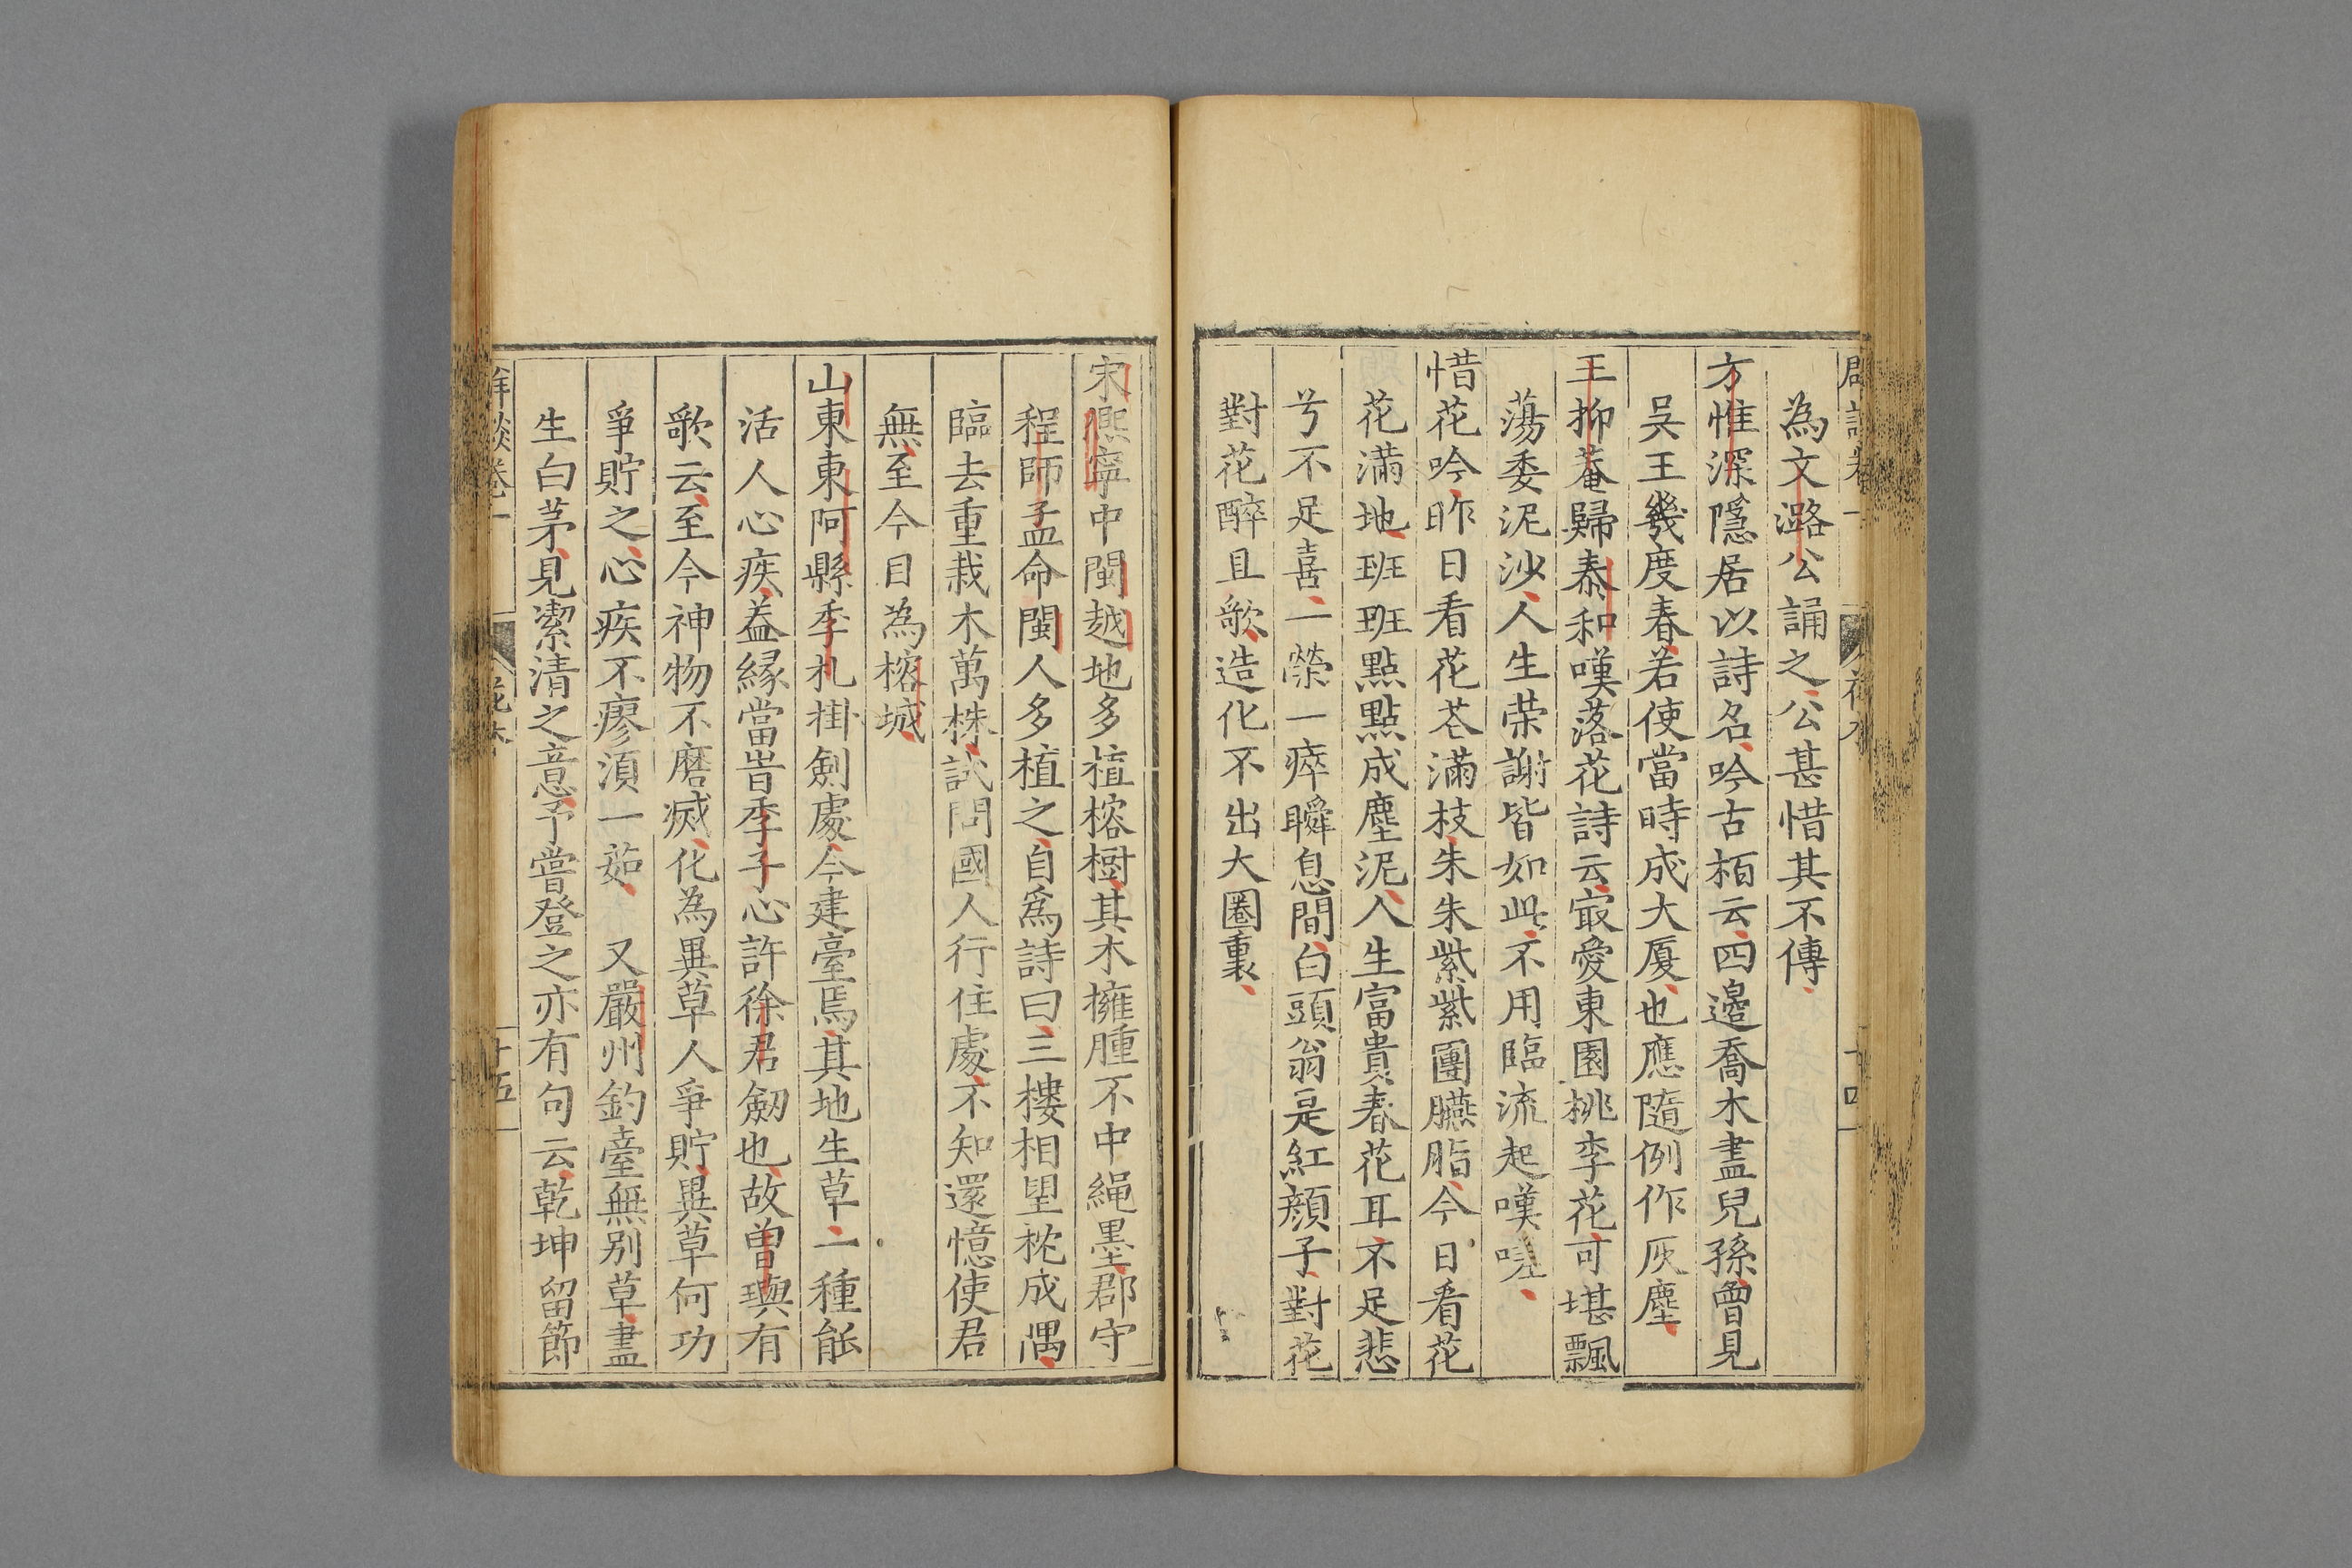 為文潞公誦之公甚惜其不傳
方惟深隱居以詩名吟古栢云四邊喬木盡兒孫曾見
吳王幾度春若使當時成大厦也應隨例作灰塵
王抑菴歸泰和嘆落花詩云㝡愛東園桃李花可堪飄
蕩委泥沙人生荣謝皆如此不用臨流起嘆嗟
惜花吟昨日看花花滿枝朱朱紫紫團臙脂今日看花
花滿地班班點點成塵泥人生富貴春花耳不足悲
兮不足喜一榮一瘁瞬息間白頭翁是紅顔子對花
對花醉且歌造化不出大圈裏
宋熈寧中閩越地多植榕樹其木擁腫不中䋲墨郡守
程師孟命閩人多植之自爲詩曰三樓相望枕成隅
臨去重栽木萬株試問國人行住處不知還憶使君
無至今目為榕城
山東東阿縣季札掛劍處今建臺焉其地生草一種能
活人心疾葢縁當旹季子心許徐君劒也故曽璵有
歌云至今神物不磨滅化為異草人爭貯異草何功
爭貯之心疾不瘳湏一茹 又嚴州釣臺無别草盡
生白茅見潔清之意予嘗登之亦有句云乾坤留節
十五